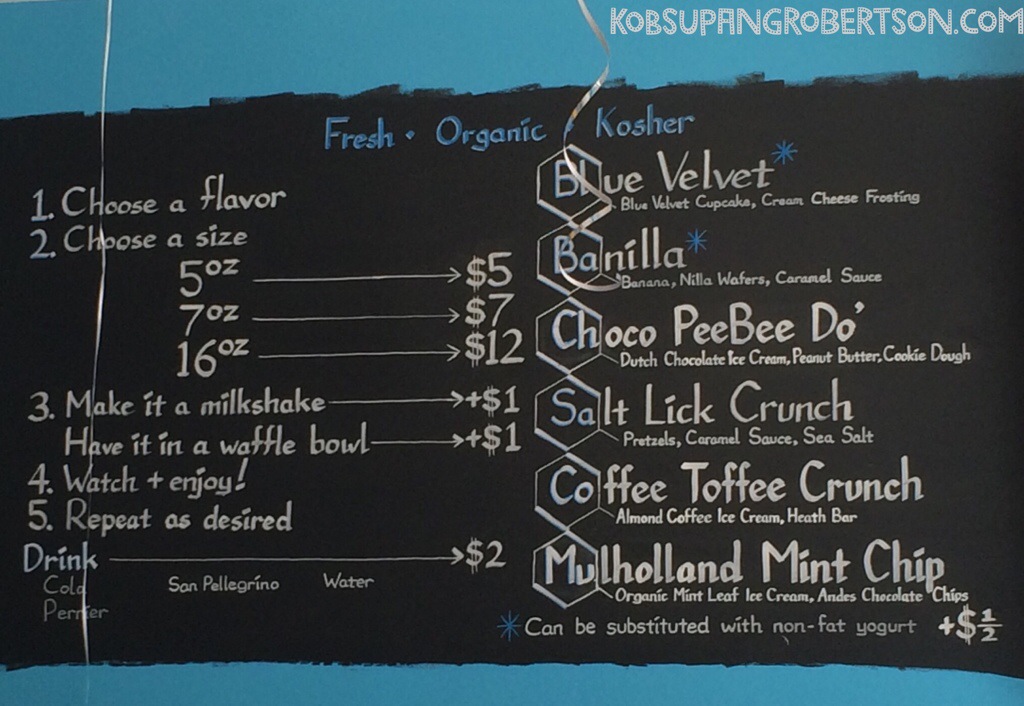 KOBSUPANGROBERTSON.COM
Fresh • Organic • Kosher
1. Choose a flavor
2. Choose a size
5oz $5
7oz $7
16oz $12
3. Make it a milkshake +$1
Have it in a waffle bowl +$1
4. Watch + enjoy!
5. Repeat as desired
Drink $2
Cold San Pellegrino Water
Perrier
Blue Velvet*
Blue Velvet Cupcake, Cream Cheese Frosting
Banilla*
Banana, Nilla Wafers, Caramel Sauce
Choco PeeBee Do'
Dutch Chocolate Ice Cream, Peanut Butter, Cookie Dough
Salt Lick Crunch
Pretzels, Caramel Sauce, Sea Salt
Coffee Toffee Crunch
Almond Coffee Ice Cream, Heath Bar
Mulholland Mint Chip
Organic Mint Leaf Ice Cream, Andes Chocolate Chips
*Can be substituted with non-fat yogurt +$½